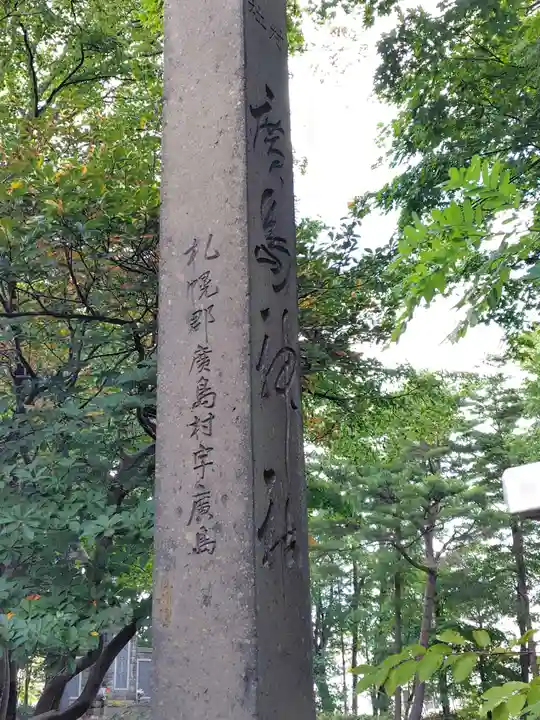 廣島神社
札幌郡廣島村字廣島